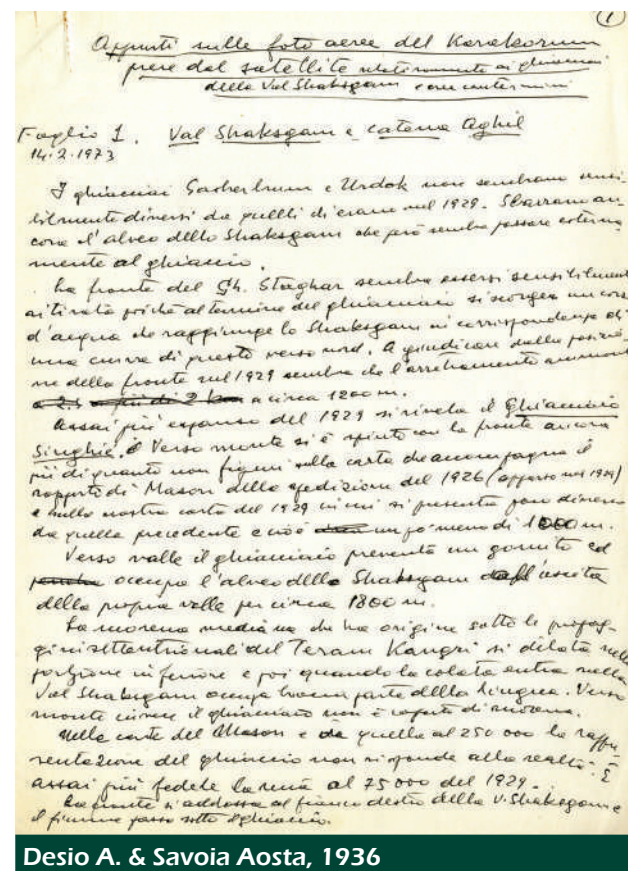 1
Appunti sulle foto aeree del Karakorum
prese dal satellite relativamente ai ghiacciai
della Val Shaksgam e sue contermini
Foglio 1. Val Shaksgam e catena Aghil
14.2.1973
I ghiacciai Gasherbrum e Urdok non sembrano sensi-
bilmente diversi da quelli di erano nel 1929. Sbarrano an-
cora l'alveo dello Shaksgam che però sembra passare esterna-
mente al ghiaccio.
La fronte del Gh. Staghar sembra essersi sensibilment
ritirata poichè al termine del ghiacciaio si scorge un corso
d'acqua che raggiunge lo Shaksgam in corrispondenza di
una curva di questo verso nord. A giudicare dalla posizio-
ne della fronte nel 1929 sembra che l'arretramento ammont
a circa 1200 m.
Assai più espanso del 1929 si rivela il Ghiacciaio
Singhié. Verso monte si è spinto con la fronte ancora
più di quanto non figuri sulla carta che accompagna il
rapporto di Mason della spedizione del 1926 (apparso nel 1927)
e sulla nostra carta del 1929 in cui si presenta poco diverso
da quella precedente e cioè un po' meno di 1000 m.
Verso valle il ghiacciaio presenta un gomito ed
occupa l'alveo dello Shaksgam dall'uscita
della propria valle per circa 1800 m.
La morena mediana che ha origine sotto le propag-
gini settentrionali del Teram Kangri si dilata nella
porzione inferiore e poi quando la colata entra nella
Val Shaksgam occupa buona parte della lingua. Verso
monte invece il ghiacciaio non è coperto di morena.
Nelle carte del Mason e da quella al 250 000 la rappre
sentazione del ghiaccio non risponde alla realtà. È
assai più fedele la mia al 75 000 del 1929.
La fronte si addossa al fianco destro della V. Shaksgam e
il fiume passa sotto il ghiaccio.
Desio A. & Savoia Aosta, 1936